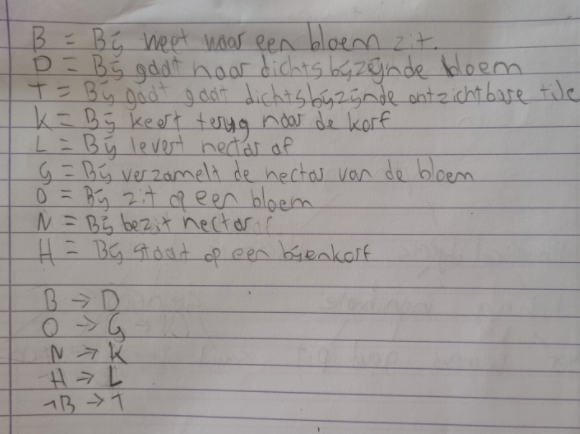 B = Bij weet waar een bloem zit.
D = Bij gaat naar dichtsbijzijnde bloem
T = Bij gaat gaat dichtsbijzijnde onzichtbare tile
K = Bij keert terug naar de korf
L = Bij levert nectar af
G = Bij verzamelt de nectar van de bloem
O = Bij zit op een bloem
N = Bij bezit nectar
H = Bij staat op een bijenkorf
B → D
O → G
N → K
H → L
¬B → T